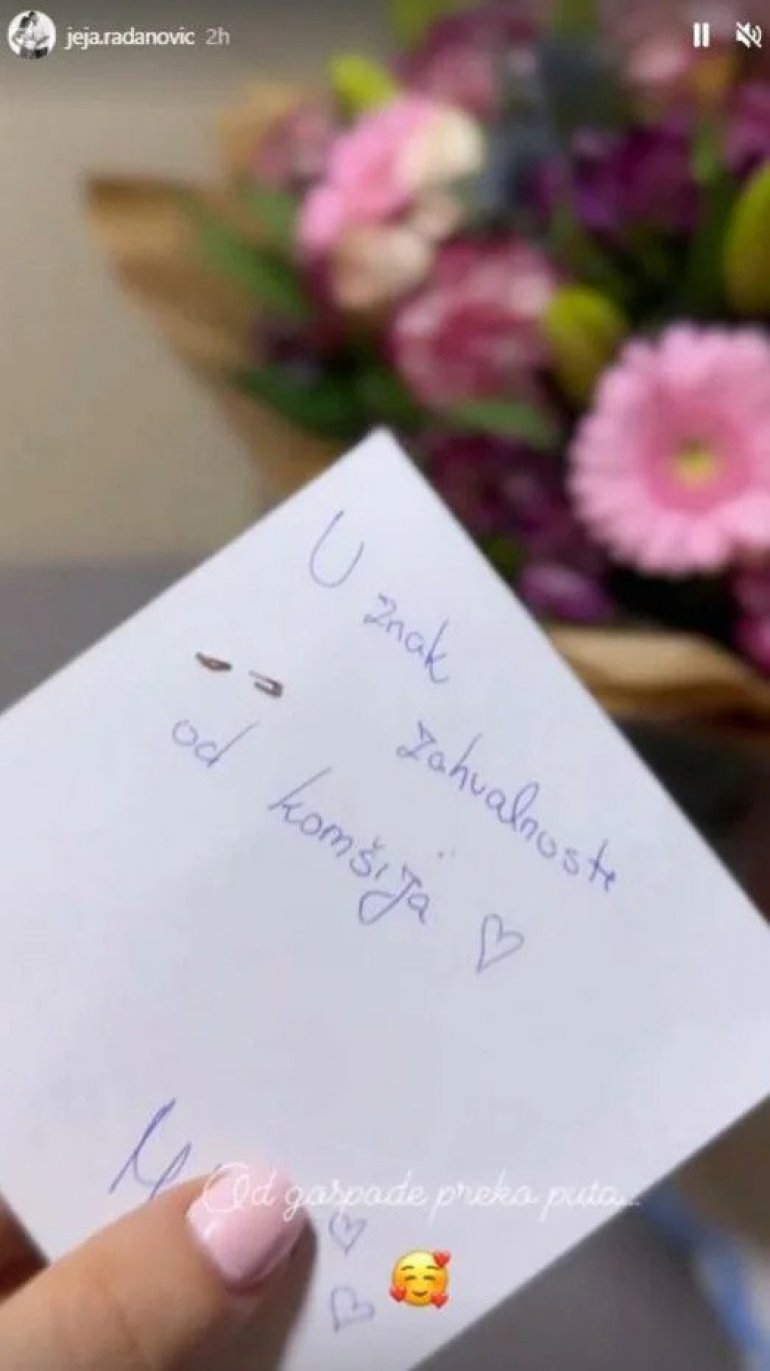 jeja.radanovic 2h
U znak
zahvalnosti
od komšija ♡
Od gospode preko puta...
♡
♡
🥰